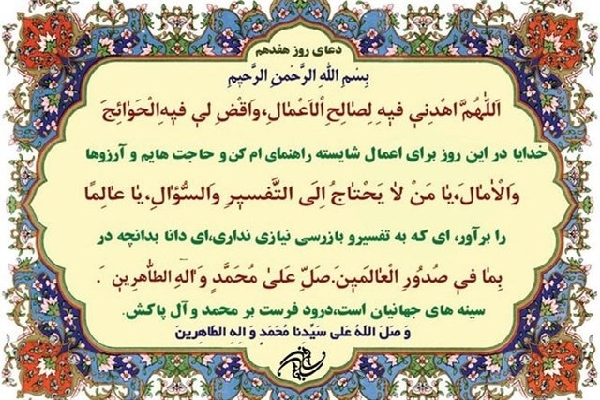 دعای روز هفدهم
بِسْمِ اللهِ الرَّحْمنِ الرَّحیمِ
اَللّهُمَّ اهْدِنی فیهِ لِصالِحِ الاَعْمالِ،وَاقْضِ لی فیهِ الْحَوائِجَ
خدایا در این روز برای اعمال شایسته راهنمای ام کن و حاجت هایم و آرزوها
وَالْامالَ،یا مَنْ لا یَحْتاجُ اِلَی التَّفْسیرِ وَالسُّؤالِ،یا عالِمًا
را برآور، ای که به تفسیرو بازرسی نیازی نداری،ای دانا بدانچه در
بِما فی صُدُورِ الْعالَمینَ.صَلِّ عَلی مُحَمَّدٍ وَ الِهِ الطّاهِرینَ .
سینه های جهانیان است،درود فرست بر محمد و آل پاکش.
وَ صَلَ اللهُ عَلی سَیِّدِنا مُحَمَدٍ وَ الِهِ الطاهِرینَ